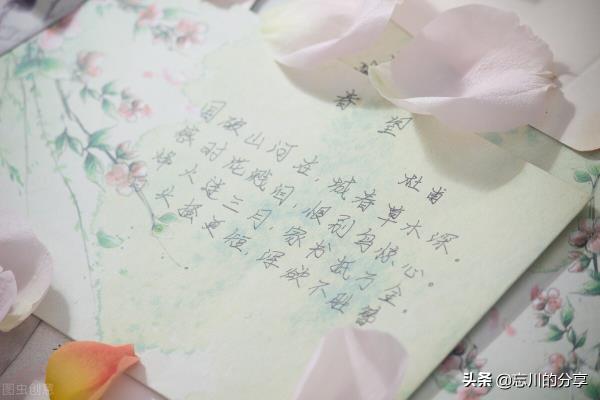 春望
杜甫
国破山河在，城春草木深。
感时花溅泪，恨别鸟惊心。
烽火连三月，家书抵万金。
白头搔更短，浑欲不胜簪
图虫创意
头条 @忘川的分享